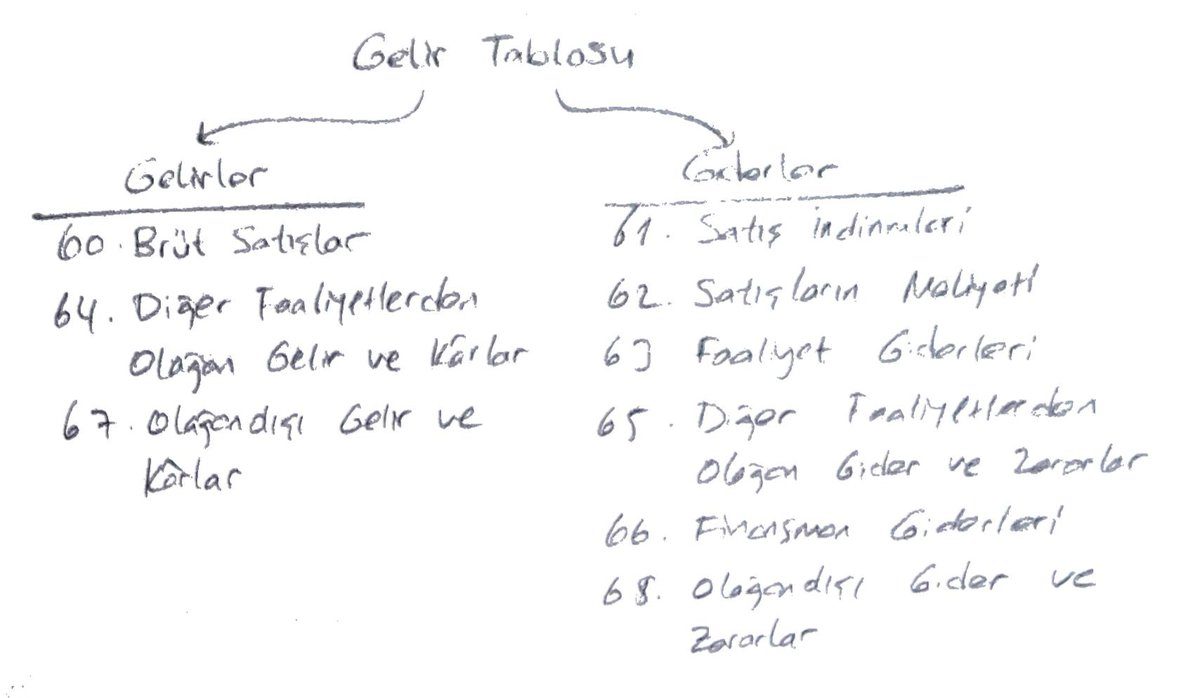 Gelir Tablosu
Gelirler
60. Brüt Satışlar
64. Diğer Faaliyetlerden
Olağan Gelir ve Kârlar
67. Olağandışı Gelir ve
Kârlar
Giderler
61. Satış indirimleri
62. Satışların Maliyeti
63 Faaliyet Giderleri
65. Diğer Faaliyetlerden
Olağan Gider ve Zararlar
66. Finansman Giderleri
68. Olağandışı Gider ve
Zararlar